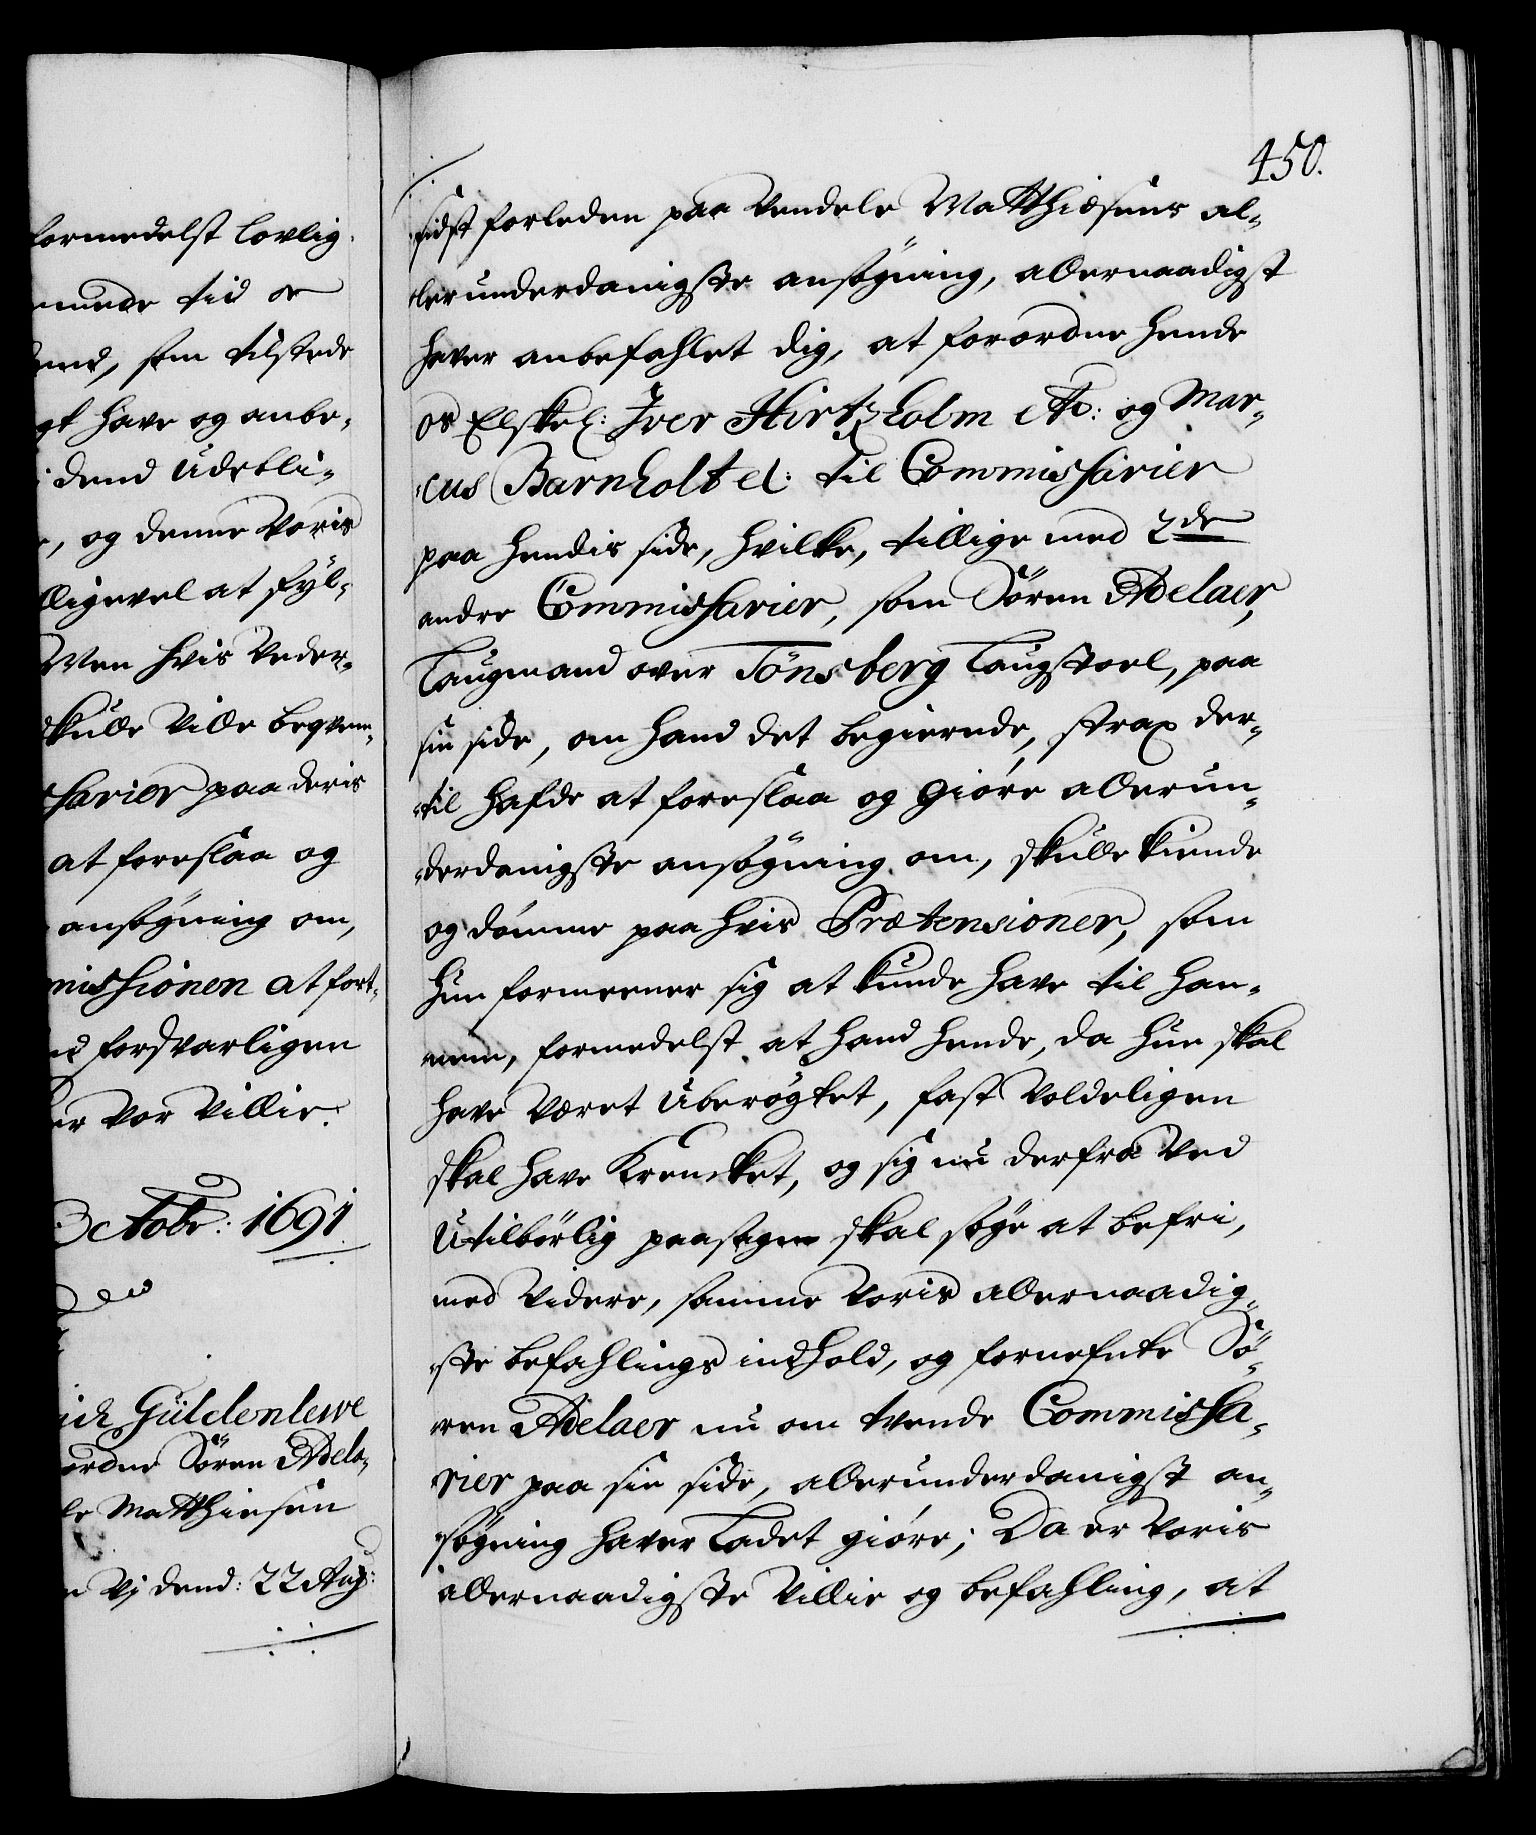 formedelst lovlig
mende tid er
dend, som tilstede
gt have og anbe-
dend Udebli-
, og denne Voris
lligevel at fyl-
Men hvis Veder-
skulle Ville beqvem-
sarier paa deris
at foreslaa og
ansøgning om,
missionen at fort-
forsvarligen
er Vor Villie.
Octobr: 1691
ich Güldenlewe
ordne Sören Adela-
le Matthiesen
Vj dend: 22 Aug:
450.
sidst forleden paa Vendele Matthiesens al-
lerunderdanigste ansøgning, allernaadigst
haver anbefahlet dig, at forordne hende
os Elskel: Iver Hirtzholm etc: og Mar-
cus Barnholt et: til Commissarier
paa hendis side, hvilke, tillige med 2de
andre Commissarier, som Sören Adelaer,
Laugmand over Tönsberg Laugstoel, paa
sin side, om hand det begierende, strax der-
til hafde at foreslaa og giöre allerun-
derdanigste ansøgning om, skulle kiende
og dömme paa hvis Prætensioner, som
hun formeener sig at kunde have til han-
nem, formedelst at hand hende, da hun skal
have været Uberøgtet, fast Voldeligen
skal have Krencket, og sig nu derfra Ved
Utilbörlig paasagn skal søge at befri,
med Videre, samme Voris allernaadig-
ste befahlings indhold, og fornefnte Sö-
ren Adelaer nu om tvende Commissa-
rier paa sin side, allerunderdanigst an-
søgning haver Ladet giöre; Da er Voris
allernaadigste Villie og befahling, at